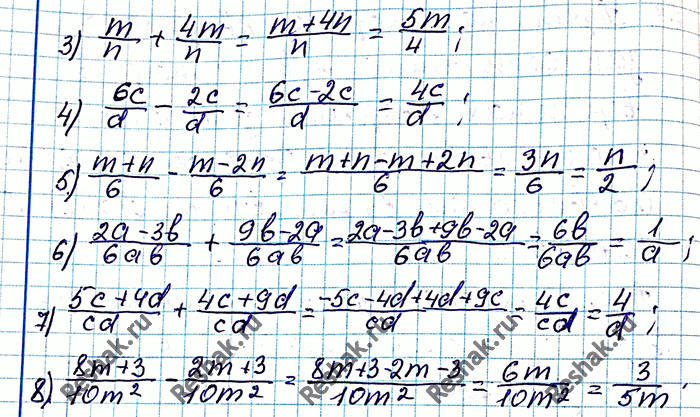 3) m/n + 4m/n = (m+4n)/n = 5m/4;
4) 6c/d - 2c/d = (6c-2c)/d = 4c/d;
5) (m+n)/6 - (m-2n)/6 = (m+n-m+2n)/6 = 3n/6 = n/2;
6) (2a-3b)/(6ab) + (9b-2a)/(6ab) = (2a-3b+9b-2a)/(6ab) = 6b/(6ab) = 1/a;
7) (5c+4d)/(cd) + (4c+9d)/(cd) = (-5c-4d+4d+9c)/(cd) = 4c/(cd) = 4/d;
8) (8m+3)/(10m²) - (2m+3)/(10m²) = (8m+3-2m-3)/(10m²) = 6m/(10m²) = 3/(5m).
Reshak.ru
Reshak.ru
Reshak.ru
Reshak.ru